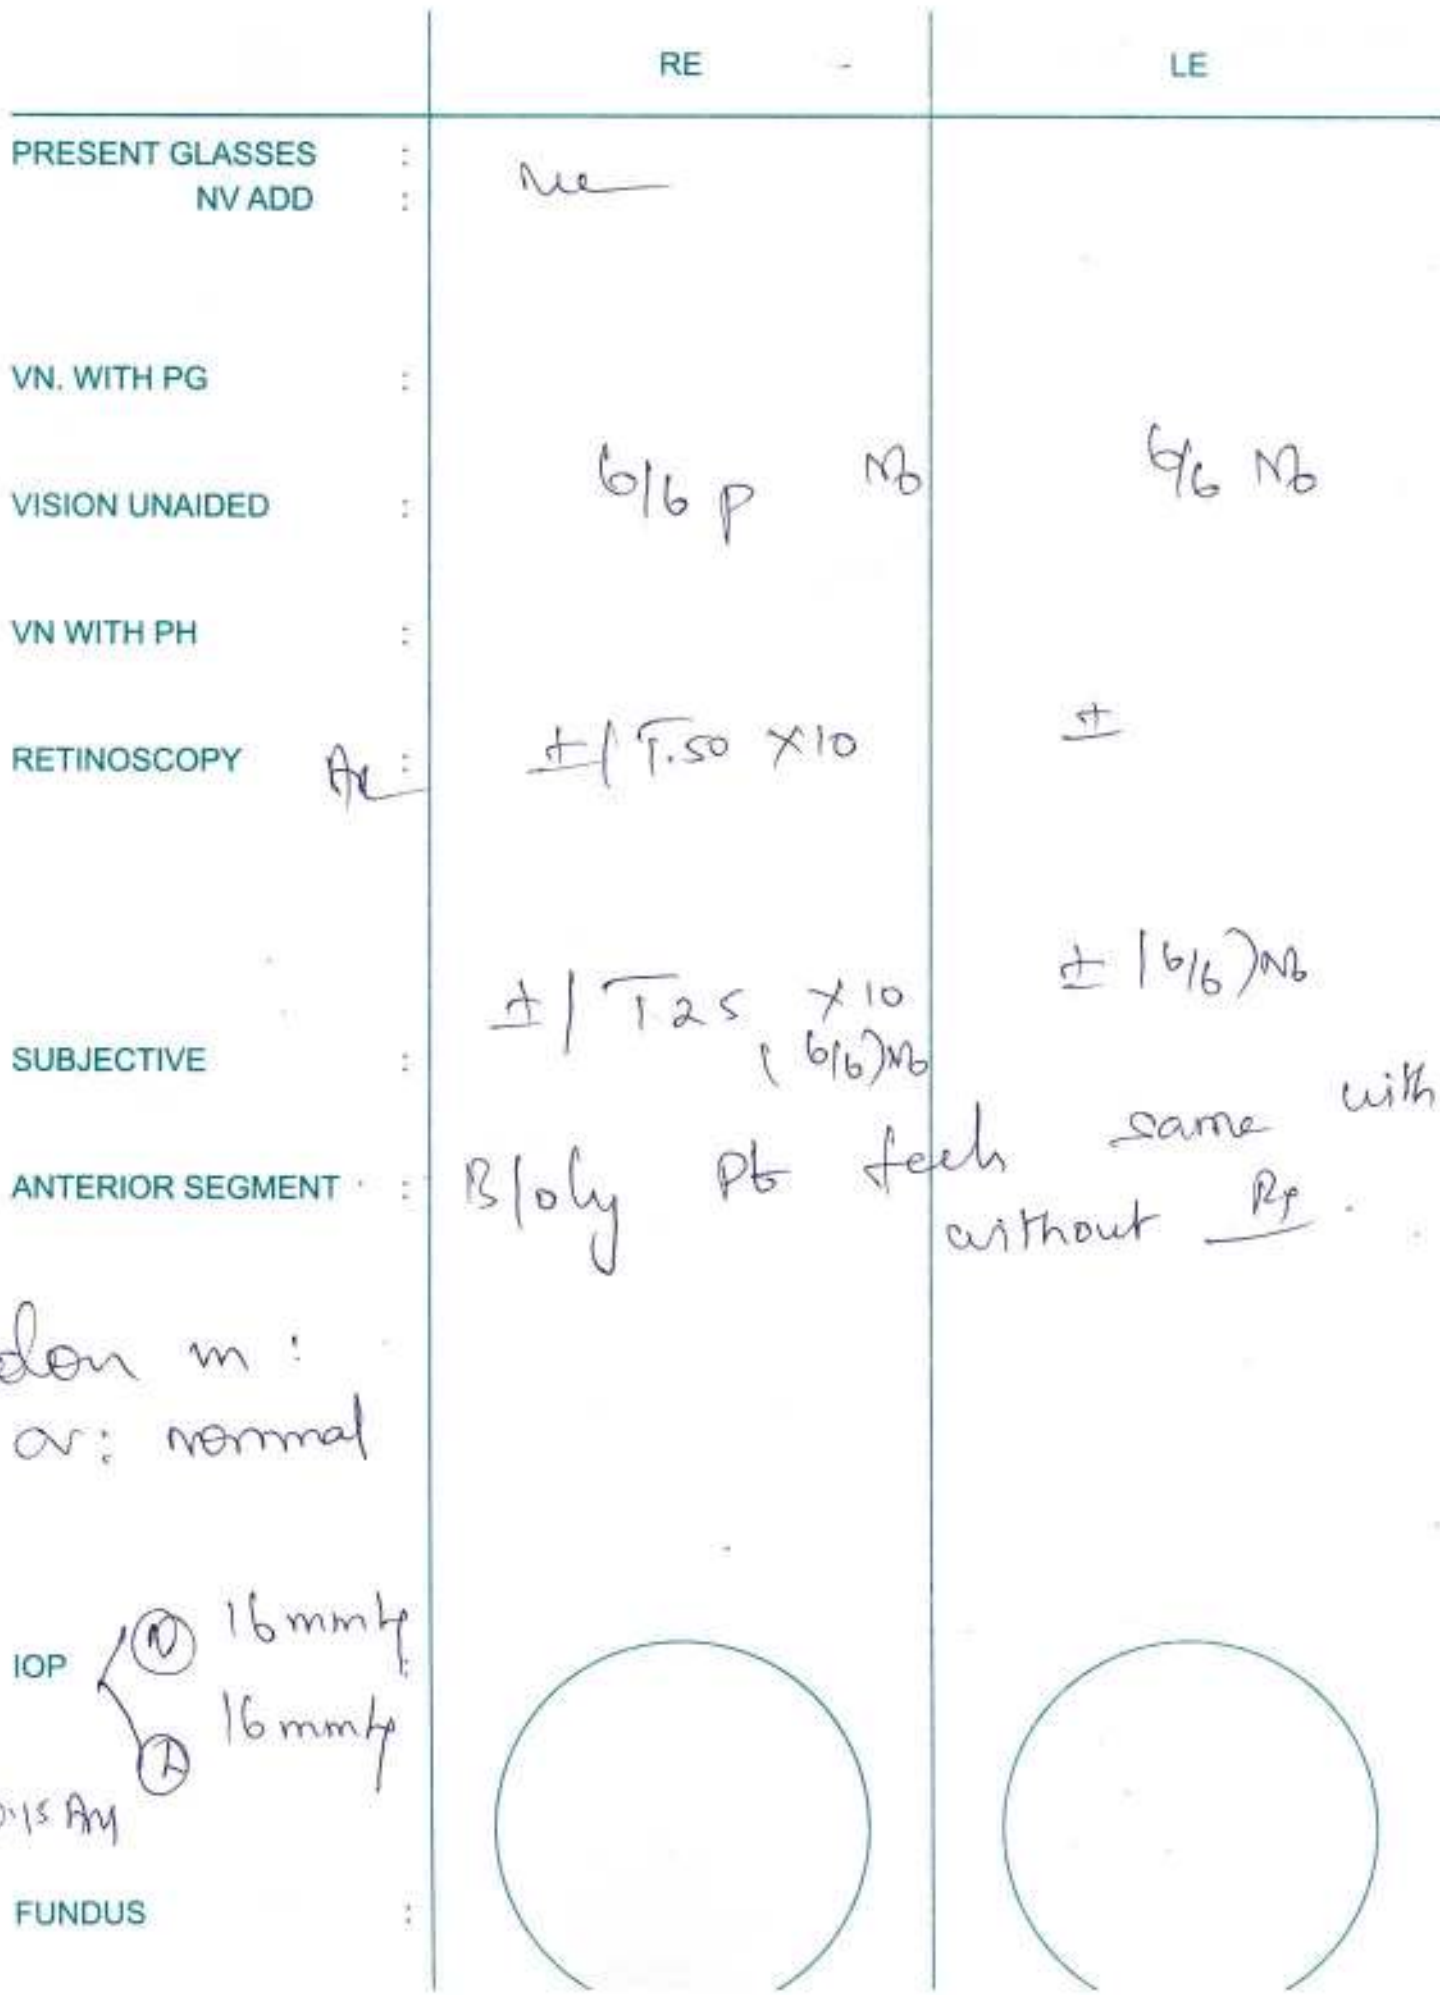 RE - LE
PRESENT GLASSES :
NV ADD :
VN. WITH PG :
VISION UNAIDED : 6/6 P N6 6/6 N6
VN WITH PH :
RETINOSCOPY AR : ± / 1.50 × 10 ±
± / 1.25 × 10 ± (6/6) N6
SUBJECTIVE : (6/6) N6
ANTERIOR SEGMENT : Pt feels same with
without Rx.
m :
CV : normal
16 mmHg
IOP :
16 mmHg
:15 AM
FUNDUS :